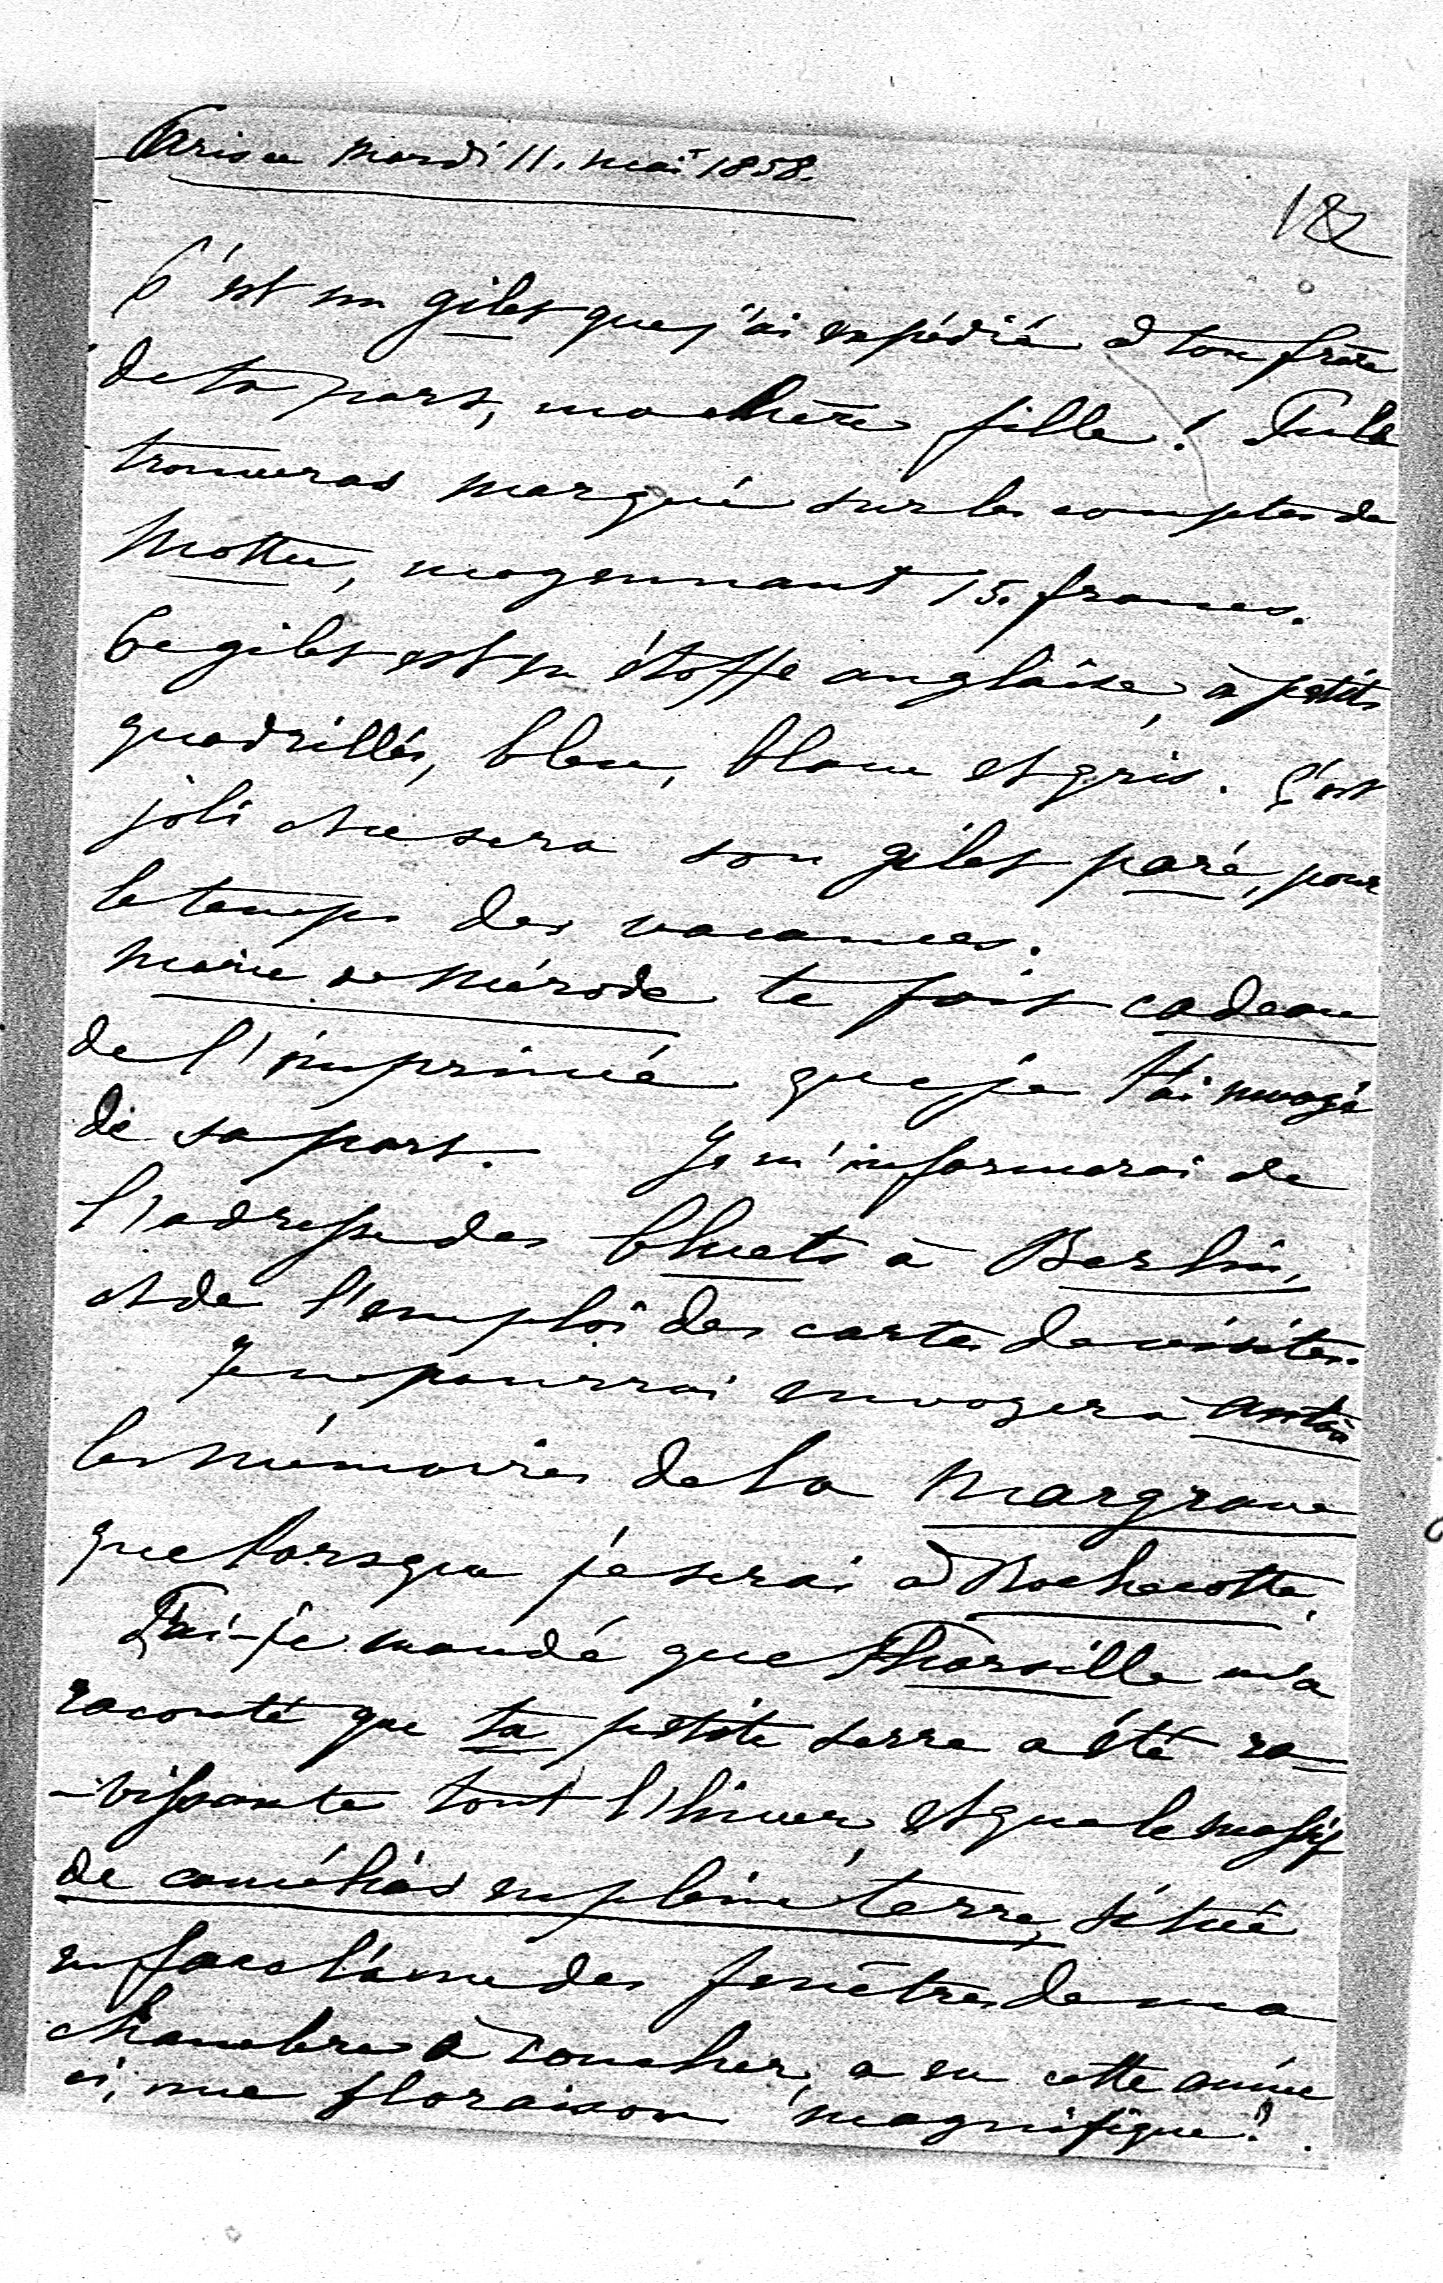 Paris ce mardi 11. mai 1858.
182
C'est un gilet que j'ai expédié à ton frère
de ta part, ma chère fille! Tu le
trouveras marqué sur les comptes de
Mottu, moyennant 15. francs.
Ce gilet est en étoffe anglaise, à petits
quadrillés, bleu, blanc et gris. C'est
joli et ce sera son gilet paré, pour
le temps des vacances.
Marie de Mérode te fait cadeau
de l'imprimé que je t'ai envoyé
de sa part. Je m'informerai de
l'adresse des bluets à Berlin,
et de l'emploi des cartes de visites.
Je ne pourrai envoyer à
les mémoires de la Margrave
que lorsque je serai à Rochecotte.
T'ai-je mandé que m'a
raconté que ta petite serre a été ra-
-vissante tout l'hiver, et que le massif
de camélias en pleine terre, situé
en face l'une des fenêtres de ma
chambre à coucher, a eu cette année
ci, une floraison magnifique!